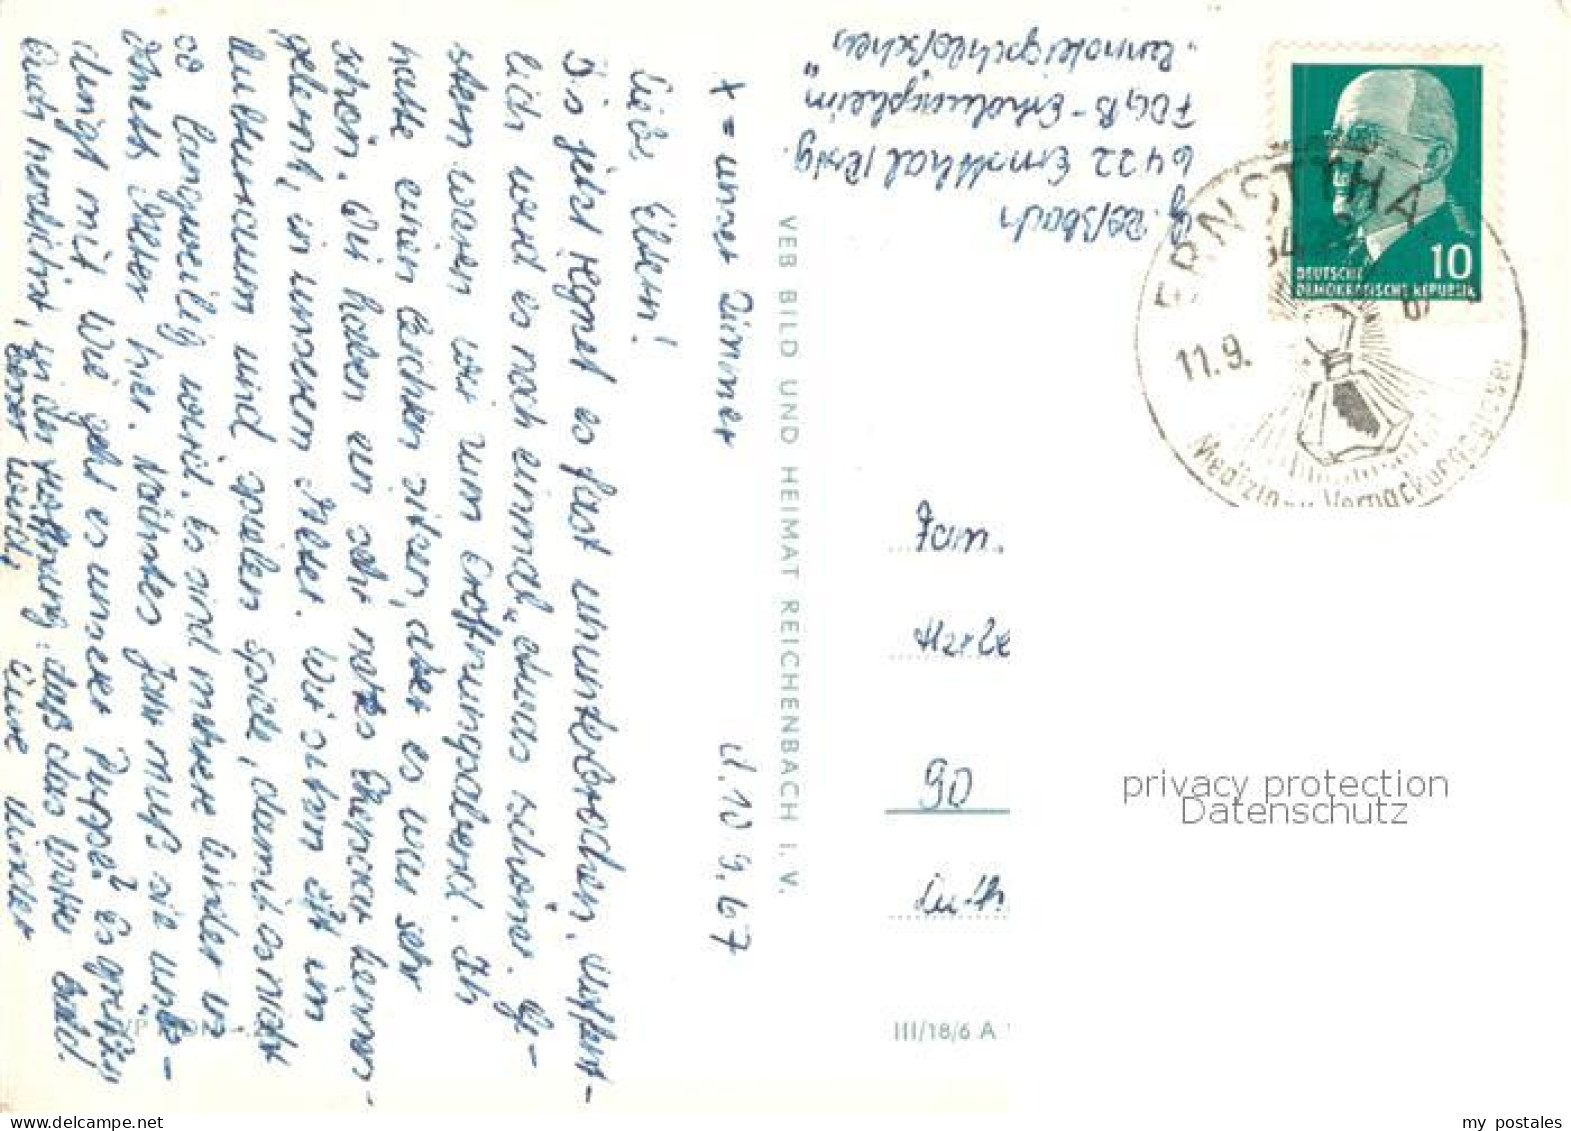 x = unser Zimmer
d. 10.9.67
Liebe Eltern!
Bis jetzt regnet es fast ununterbrochen, hoffent-
lich wird es noch einmal etwas schöner. Ge-
stern waren wir zum Eröffnungsabend. Ich
hatte einen leichten sitzen, aber es war sehr
schön. Wir haben ein sehr nettes Ehepaar kennen-
gelernt, in unserem Alter. Wir sitzen oft im
Klubraum und spielen Spiele, damit es nicht
so langweilig wird. Es sind mehrere Kinder in
Alter hier. Nächstes Jahr muß sie unbe-
dingt mit. Wie geht es unserer Puppe? Es grüßen
Euch herzlichst, in der Hoffnung, daß das Wetter bald
besser wird, Eure Kinder
VEB BILD UND HEIMAT REICHENBACH I. V.
G. Roßbach
6422 Ernstthal / Rstg.
FDGB-Erholungsheim
"Rennsteigschlößchen"
DEUTSCHE
DEMOKRATISCHE REPUBLIK
10
ERNSTTHA
642
11.9.
Medizin- u. Verpackungsgläser
Fam.
90
III/18/6 A
privacy protection
Datenschutz
my_postales